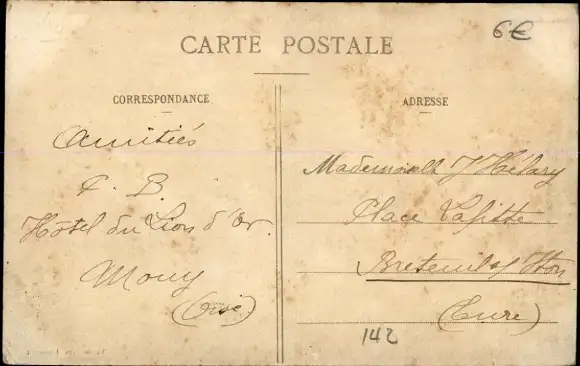 6€
CARTE POSTALE
CORRESPONDANCE
Amitiés
P. B.
Hôtel du Lion d'Or.
Mouy
(Oise)
ADRESSE
Mademoiselle Hélary
Place Lafitte
Breteuil s/ Iton
(Eure)
142